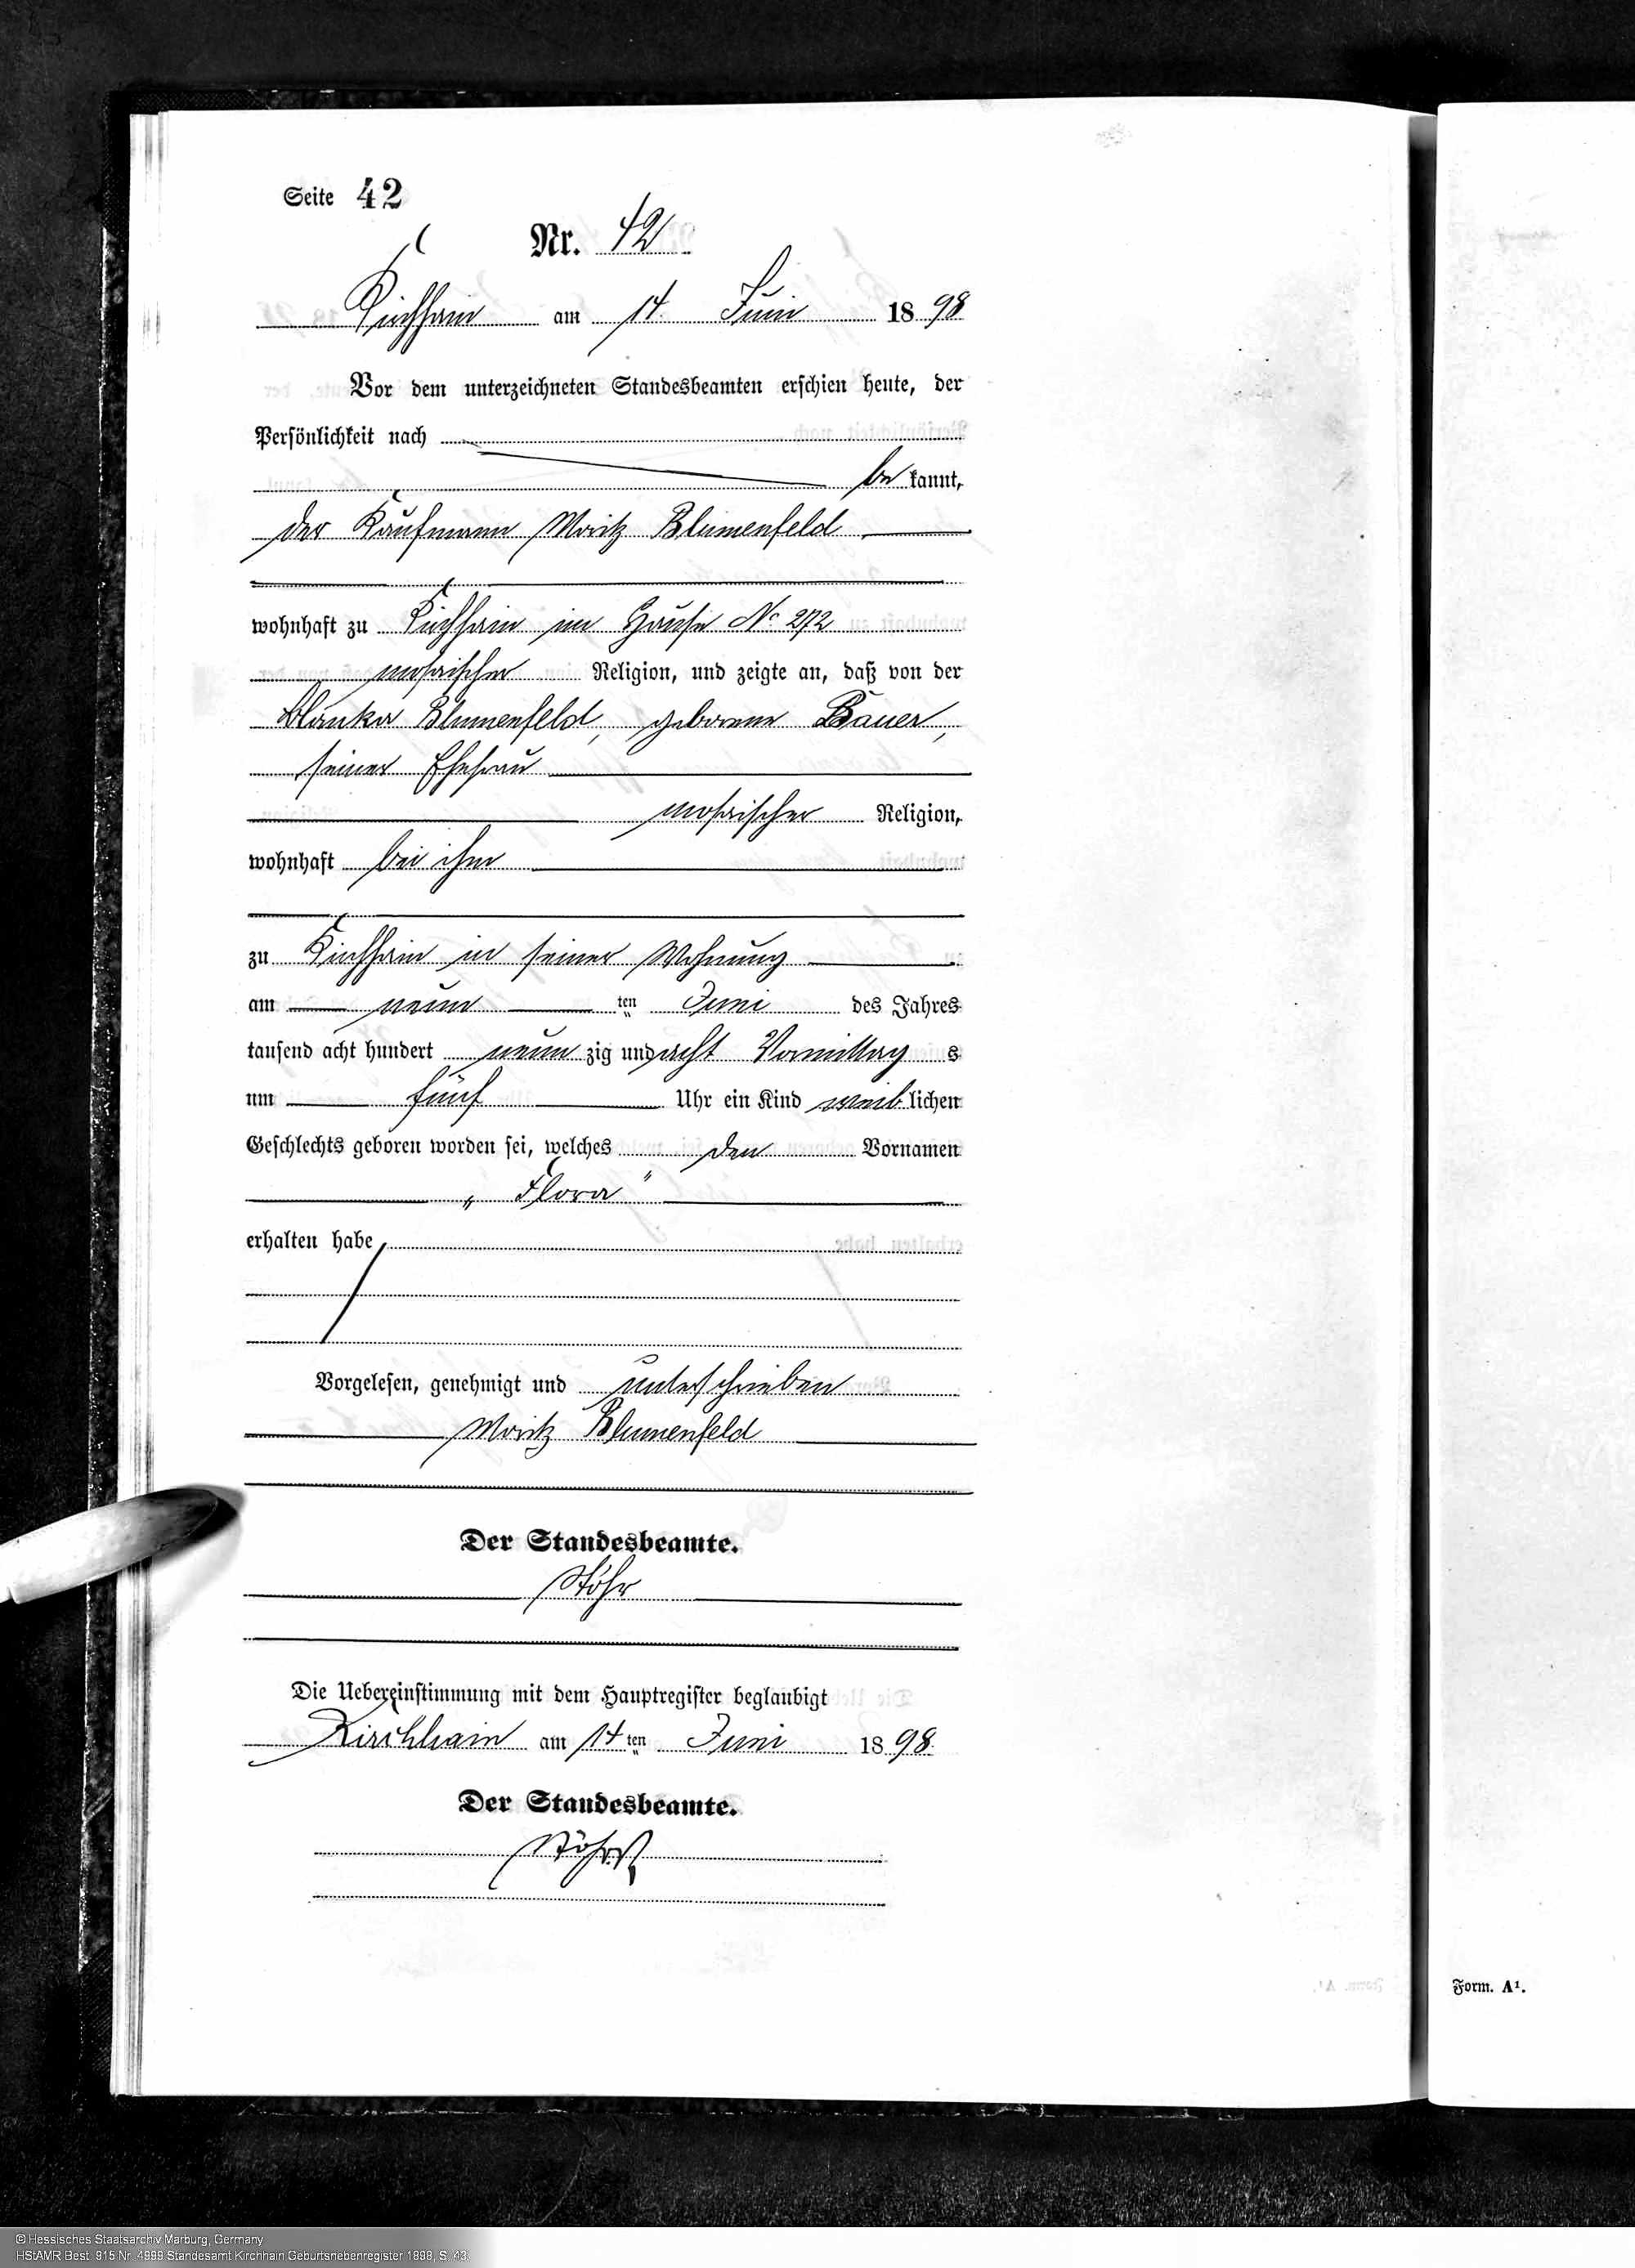 Seite 42
Nr. 42
Kirchhain am 14. Juni 1898
Vor dem unterzeichneten Standesbeamten erschien heute, der
Persönlichkeit nach
be kannt,
der Kaufmann Moritz Blumenfeld
wohnhaft zu Kirchhain im Hause No 272
mosaischer Religion, und zeigte an, daß von der
Blanka Blumenfeld, geborene Bauer,
seiner Ehefrau
mosaischer Religion,
wohnhaft bei ihm
zu Kirchhain in seiner Wohnung
am neun ten Juni des Jahres
tausend acht hundert neun zig und acht Vormittag s
um fünf Uhr ein Kind weib lichen
Geschlechts geboren worden sei, welches den Vornamen
„Flora"
erhalten habe
Vorgelesen, genehmigt und unterschrieben
Moritz Blumenfeld
Der Standesbeamte.
Stöhr
Die Uebereinstimmung mit dem Hauptregister beglaubigt
Kirchhain am 14 ten Juni 1898.
Der Standesbeamte.
Stöhr
Form. A¹.
© Hessisches Staatsarchiv Marburg, Germany
HStAMR Best. 915 Nr. 4999 Standesamt Kirchhain Geburtsnebenregister 1898, S. 43.